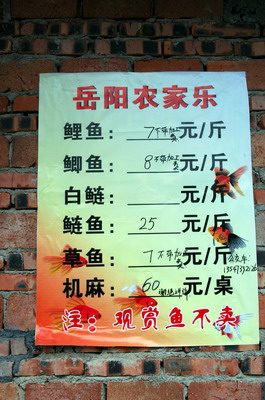 岳阳农家乐
鲤鱼：7不带加工费元/斤
鲫鱼：8不带加工费元/斤
白鲢：元/斤
鲢鱼：25元/斤
草鱼：7不带加工费元/斤
机麻：60元/桌
注：观赏鱼不卖